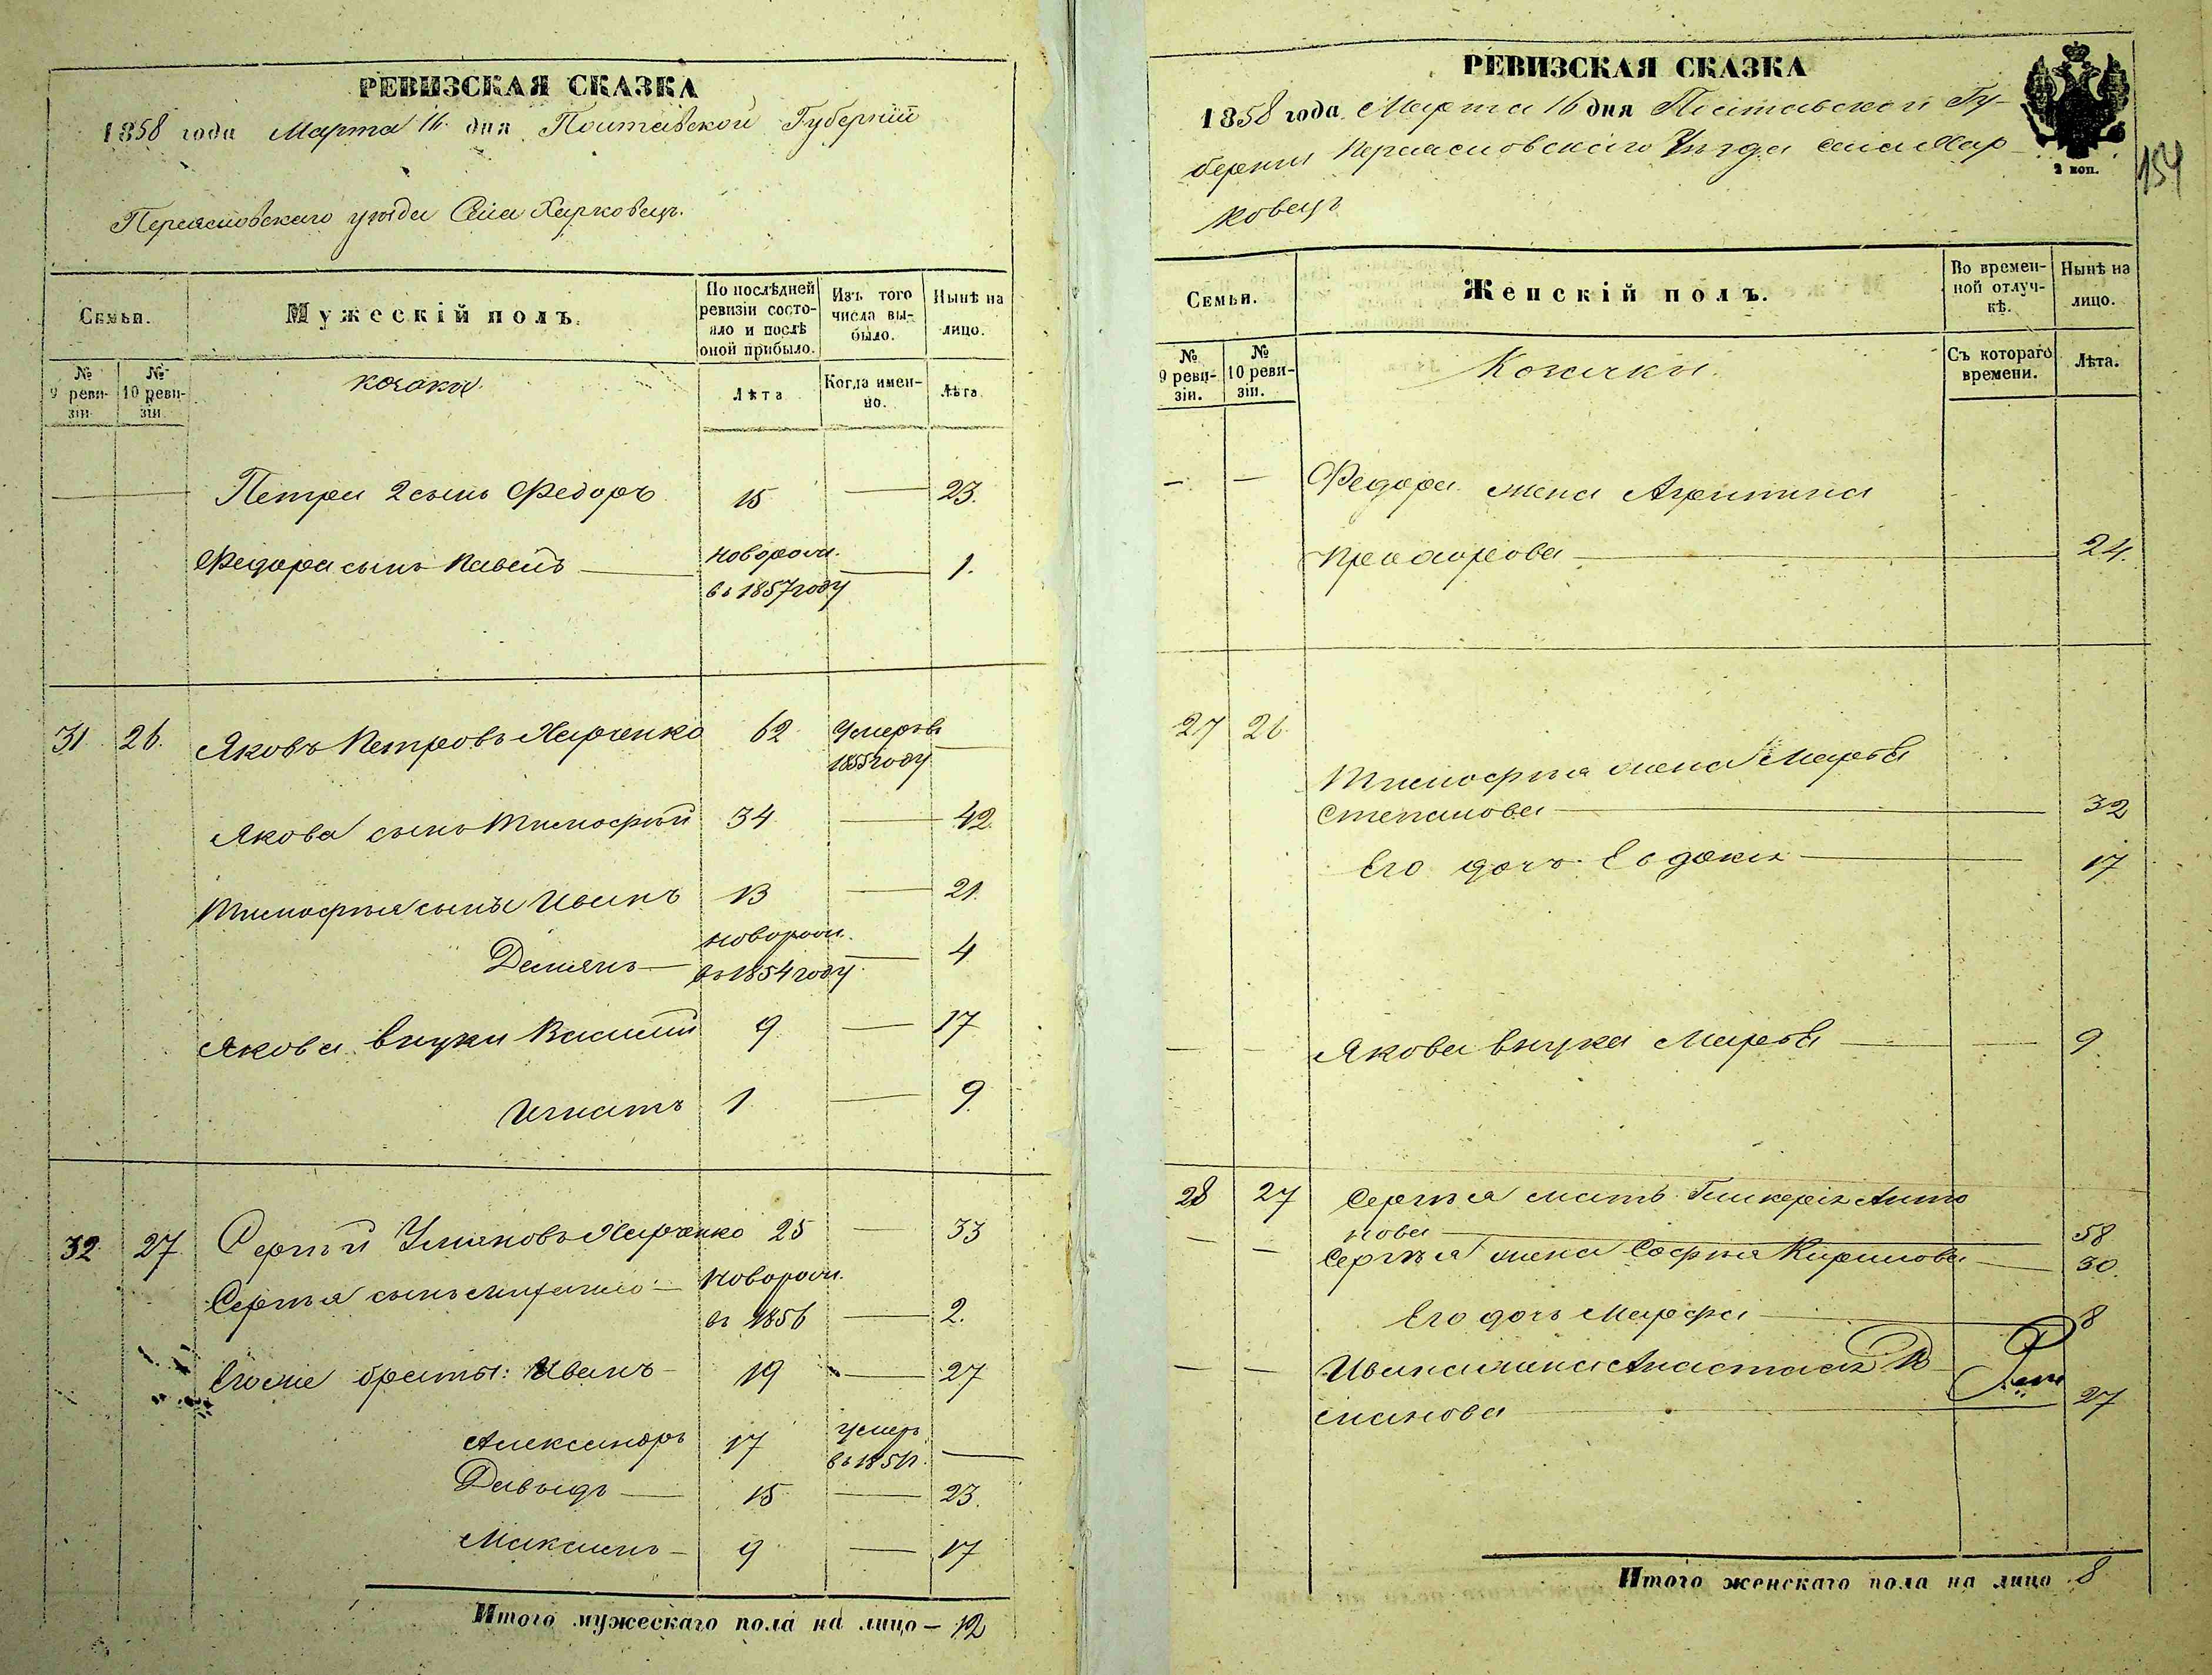 РЕВИЗСКАЯ СКАЗКА
1858 года Марта 16 дня Полтавской Губерніи
Переясловскаго уѣзда Села Харковецъ.
Семьи.
Мужескій полъ.
По послѣдней ревизіи состояло и послѣ оной прибыло.
Изъ того числа выбыло.
Нынѣ на лицо.
№ 9 ревизіи
№ 10 ревизіи
козаки
Лѣта
Когда именно.
Лѣта
Петра 2 сынъ Федоръ 15 — 23.
Федора сынъ Павелъ — новорож. — 1.
въ 1857 году
31. 26. Яковъ Петровъ Харченко 62 Умеръ въ
1855 году
Якова сынъ Тимофѣй 34 — 42.
Тимофѣя сыны Иванъ 13 — 21.
Демянъ — новорож. — 4
въ 1854 году.
Якова внуки Василій 9 — 17
Игнатъ 1 — 9.
32. 27 Сергѣй Харченко 25 — 33
Сергѣя сынъ Михайло — новорож.
въ 1856 — 2.
Его же браты: Иванъ — 19 — 27
Александръ 17 умеръ
въ —
Давыдъ — 15 — 23.
Максимъ — 9 — 17
Итого мужескаго пола на лицо — 12
РЕВИЗСКАЯ СКАЗКА
1858 года Марта 16 дня Полтавской Гу-
берніи Переясловскаго Уѣзда села Хар-
ковецъ
2 коп.
154
Семьи.
Женскій полъ.
Во временной отлучкѣ.
Нынѣ на лицо.
№ 9 ревизіи.
№ 10 ревизіи.
Козачки.
Съ котораго времени.
Лѣта.
— — Федора жена Агрипина
Прохорова — 24.
27 26
Тимофѣя жена Марья
Степанова — 32
Его дочь Евдокія — 17
— — Якова внука Марья — — 9
28 27 Сергѣя мать Гликерія Анто
нова — 58
— — Сергѣя жена Софія Кирилова — 30.
Его дочь Марфа — 8
— — Ивана жена Анастасія
27
Итого женскаго пола на лицо 8